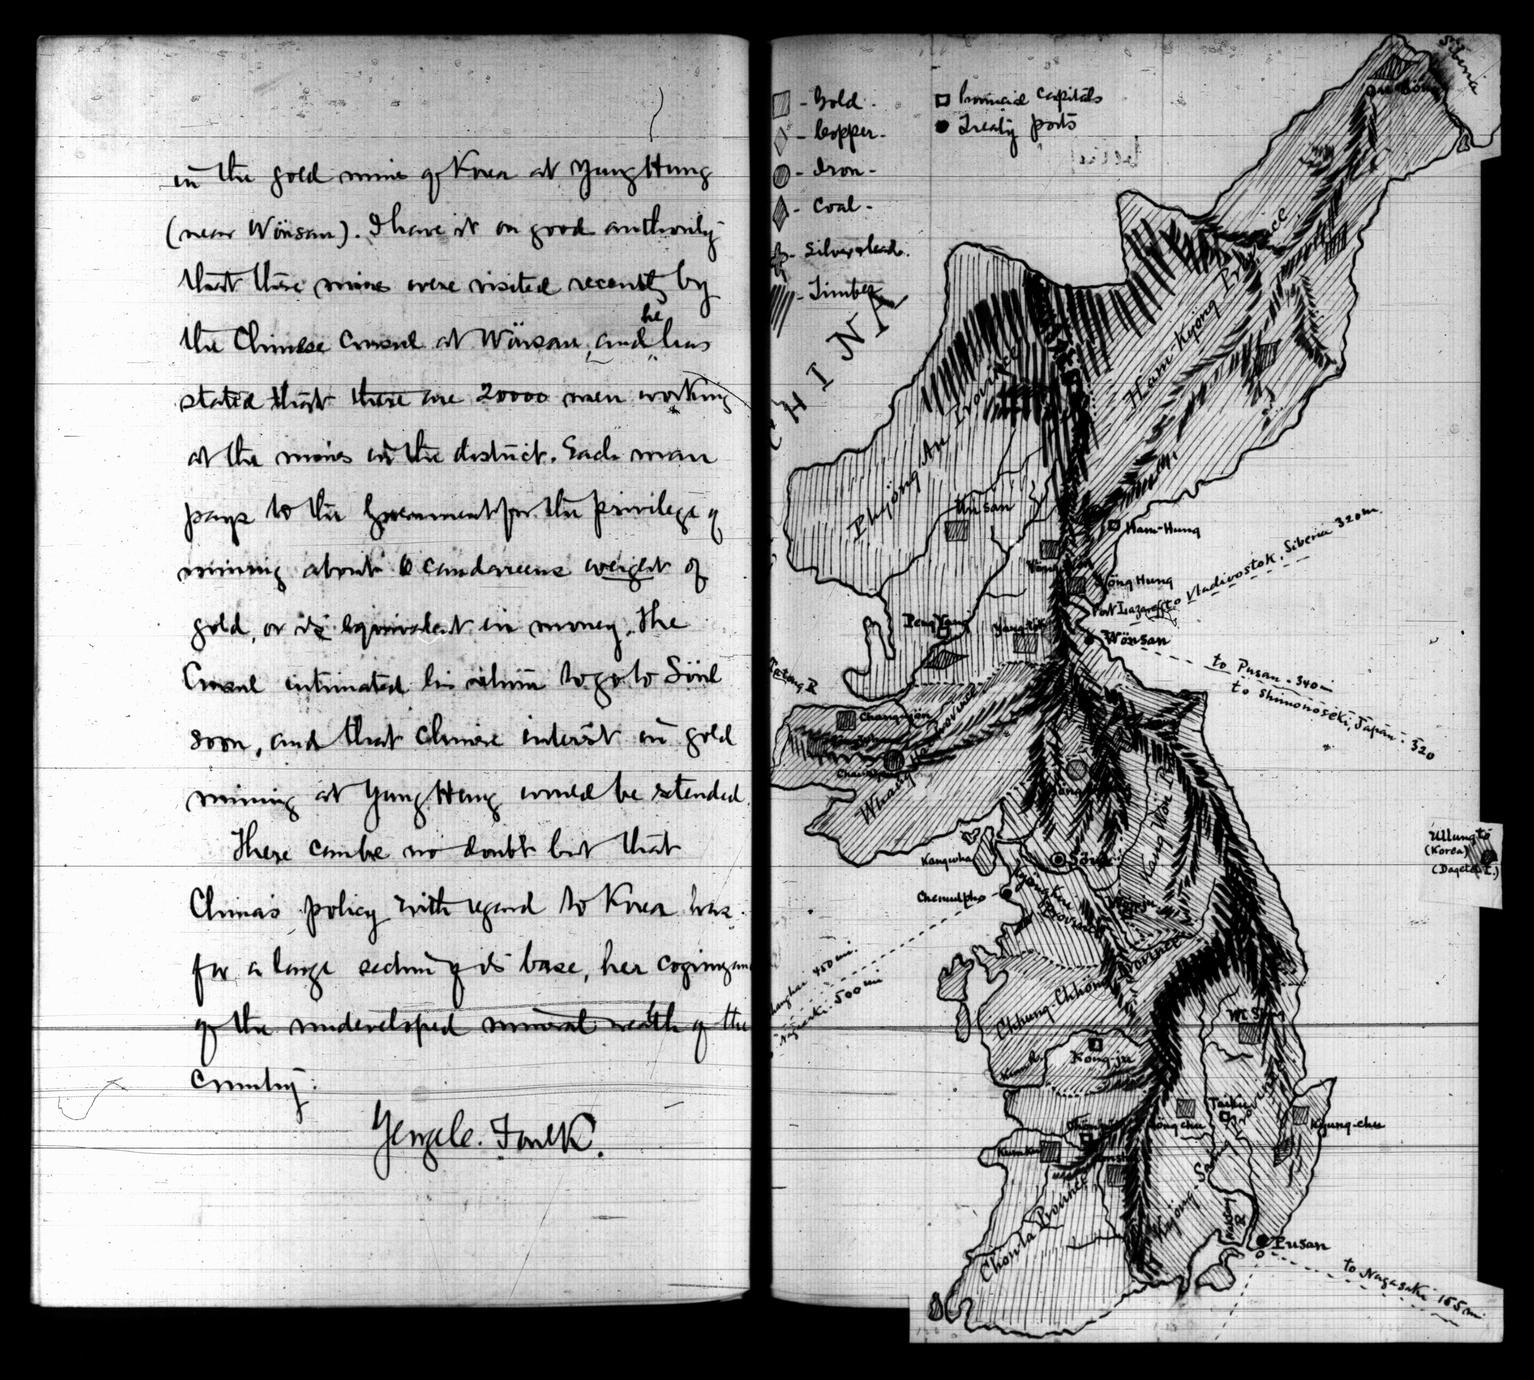 in the gold mines of Korea at Yung Hung
(near Wönsan). I have it on good authority
that these mines were visited recently by
the Chinese Consul at Wönsan, and he has
stated that there are 20000 men working
at the mines in the district. Each man
pays to the Government for the privilege of
mining about 6 candareens weight of
gold, or its equivalent in money. The
Consul intimated his return to go to Söul
soon, and that Chinese interest in gold
mining at Yung Hung would be extended.
There can be no doubt but that
China's policy with regard to Korea has
for a large section of its base, her cognizance
of the undeveloped mineral wealth of the
Country.
George C. Foulk.
- Gold -
- Copper -
- Iron -
- Coal -
- Silver & lead.
- Timber
Provincial Capitals
Treaty ports
Siberia
CHINA
Ham Kyöng Province
Phyöng An Province
Un san
Ham-Hung
Yöng Hung
Port Lazareff
to Vladivostok, Siberia 320 m.
Peng Yang
Wönsan
to Pusan - 340 m
to Shimonoseki, Japan - 320
Tatong R
Chang-yön
Whang Hai Province
Kang Wön
Ullungto
(Korea)
(Dagelet I.)
Kangwha
Söul
Chemulpho
Kyöng Kui Province
Shanghai 450 mi.
Nagasaki 500 mi
Chhung-Chhöng Province
Kong-ju
Taiku
Kyung-chu
Chonla Province
Kyöng Sang Province
Pusan
to Nagasaki 165 mi